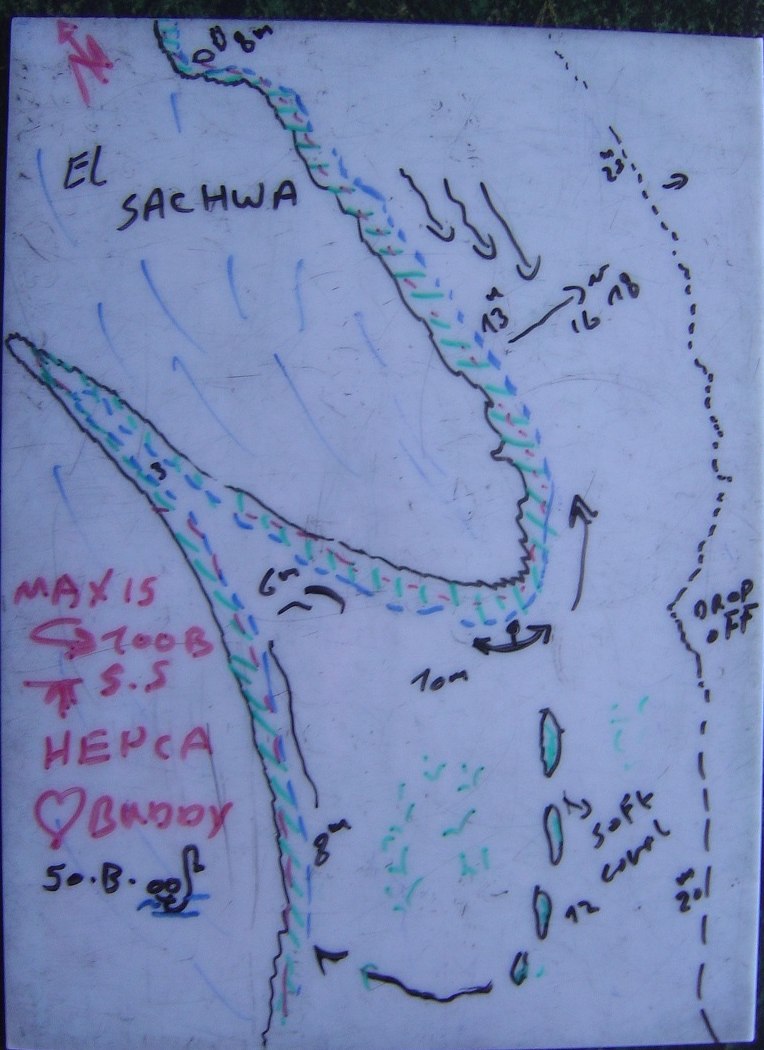 N
8m
El
SACHWA
13m
16 18m
DROP
OFF
6m
10m
MAX 15
100B
5.5
HEPCA
BUDDY
50.B.
8m
SOFT
CORAL
12
20m